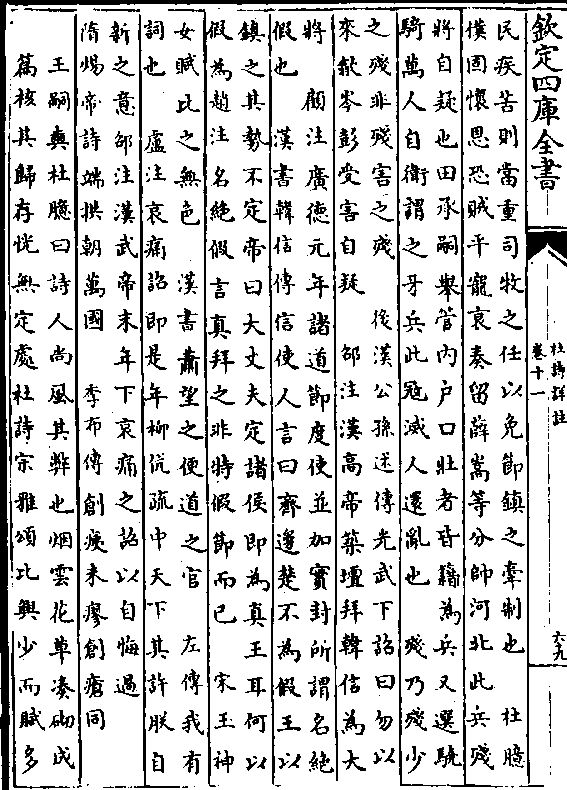 欽定四庫全書
杜詩詳註
卷十一
六九
民疾苦則當重司牧之任以免節鎮之牽制也　杜臆
僕固懷恩恐賊平寵衰奏留薛嵩等分帥河北此兵殘
將自疑也田承嗣舉管内户口壯者皆籍為兵又選驍
騎萬人自衛謂之牙兵此冦滅人還亂也　殘乃殘少
之殘非殘害之殘　後漢公孫述傳光武下詔曰勿以
來歙岑彭受害自疑　邵注漢高帝築壇拜韓信為大
將　顧注廣德元年諸道節度使並加實封所謂名絶
假也　漢書韓信傳信使人言曰齊邊楚不為假王以
鎮之其勢不定帝曰大丈夫定諸侯即為真王耳何以
假為趙注名絶假言真拜之非特假節而已　宋玉神
女賦比之無色　漢書蕭望之使道之官　左傳我有
詞也　盧注哀痛詔即是年柳伉疏中天下其許朕自
新之意邵注漢武帝末年下哀痛之詔以自悔過
隋煬帝詩端拱朝萬國　季布傳創痍未瘳創瘡同
王嗣奭杜臆曰詩人尚風其弊也烟雲花草凑砌成
篇核其歸存恍無定處杜詩宗雅頌比興少而賦多